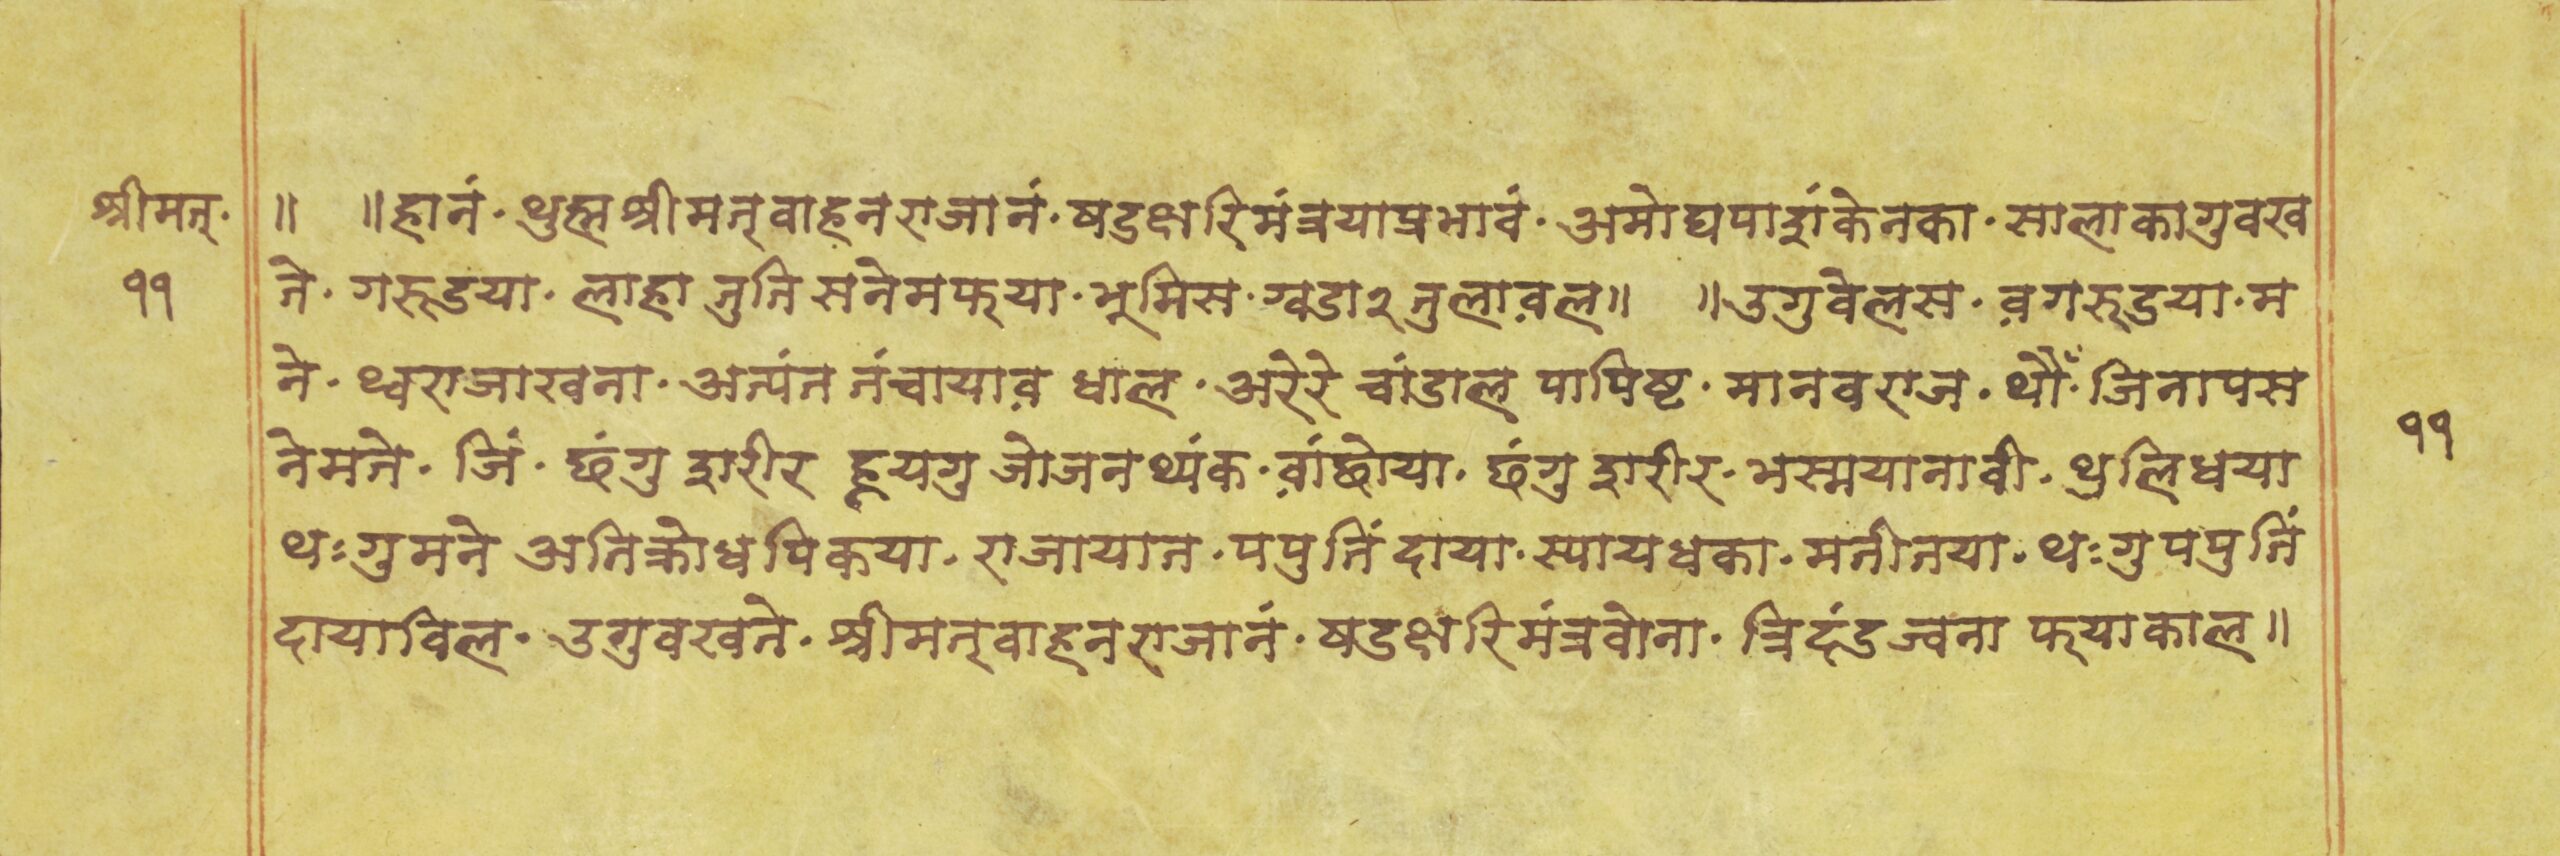 श्रीमत्· ॥ ॥हानं· थुह्म श्रीमत्वाहनराजानं· षडक्षरिमंत्रयाप्रभावं· अमोघपाशंकेनका· सालाकागुवख
११ ते· गरूडया· लाहा तुतिसनेमफया· भूमिस· ग्वडा२तुलाव़ल॥ ॥उगुवेलस· व़गरूडया·म
ने· थ्वराजाखना· अत्यंत तंचायाव़ धाल· अरेरे चांडाल पापिष्ट· मानवराज· थौँ· जिनापस
नेमते· जिं· छंगु शरीर ह्रयगु जोजनथ्यंक· व़ांछोया· छंगु शरीर· भस्मयानावी· थुलिधया
थःगुमने अतिक्रोधपिकया· राजायात· पपुतिंदाया· स्यायधका· मतीतया· थःगुपपुतिं
दायाविल· उगुवखते· श्रीमत्वाहनराजानं· षडक्षरिमंत्रवोना· त्रिदंडज्वना फयाकाल॥
११